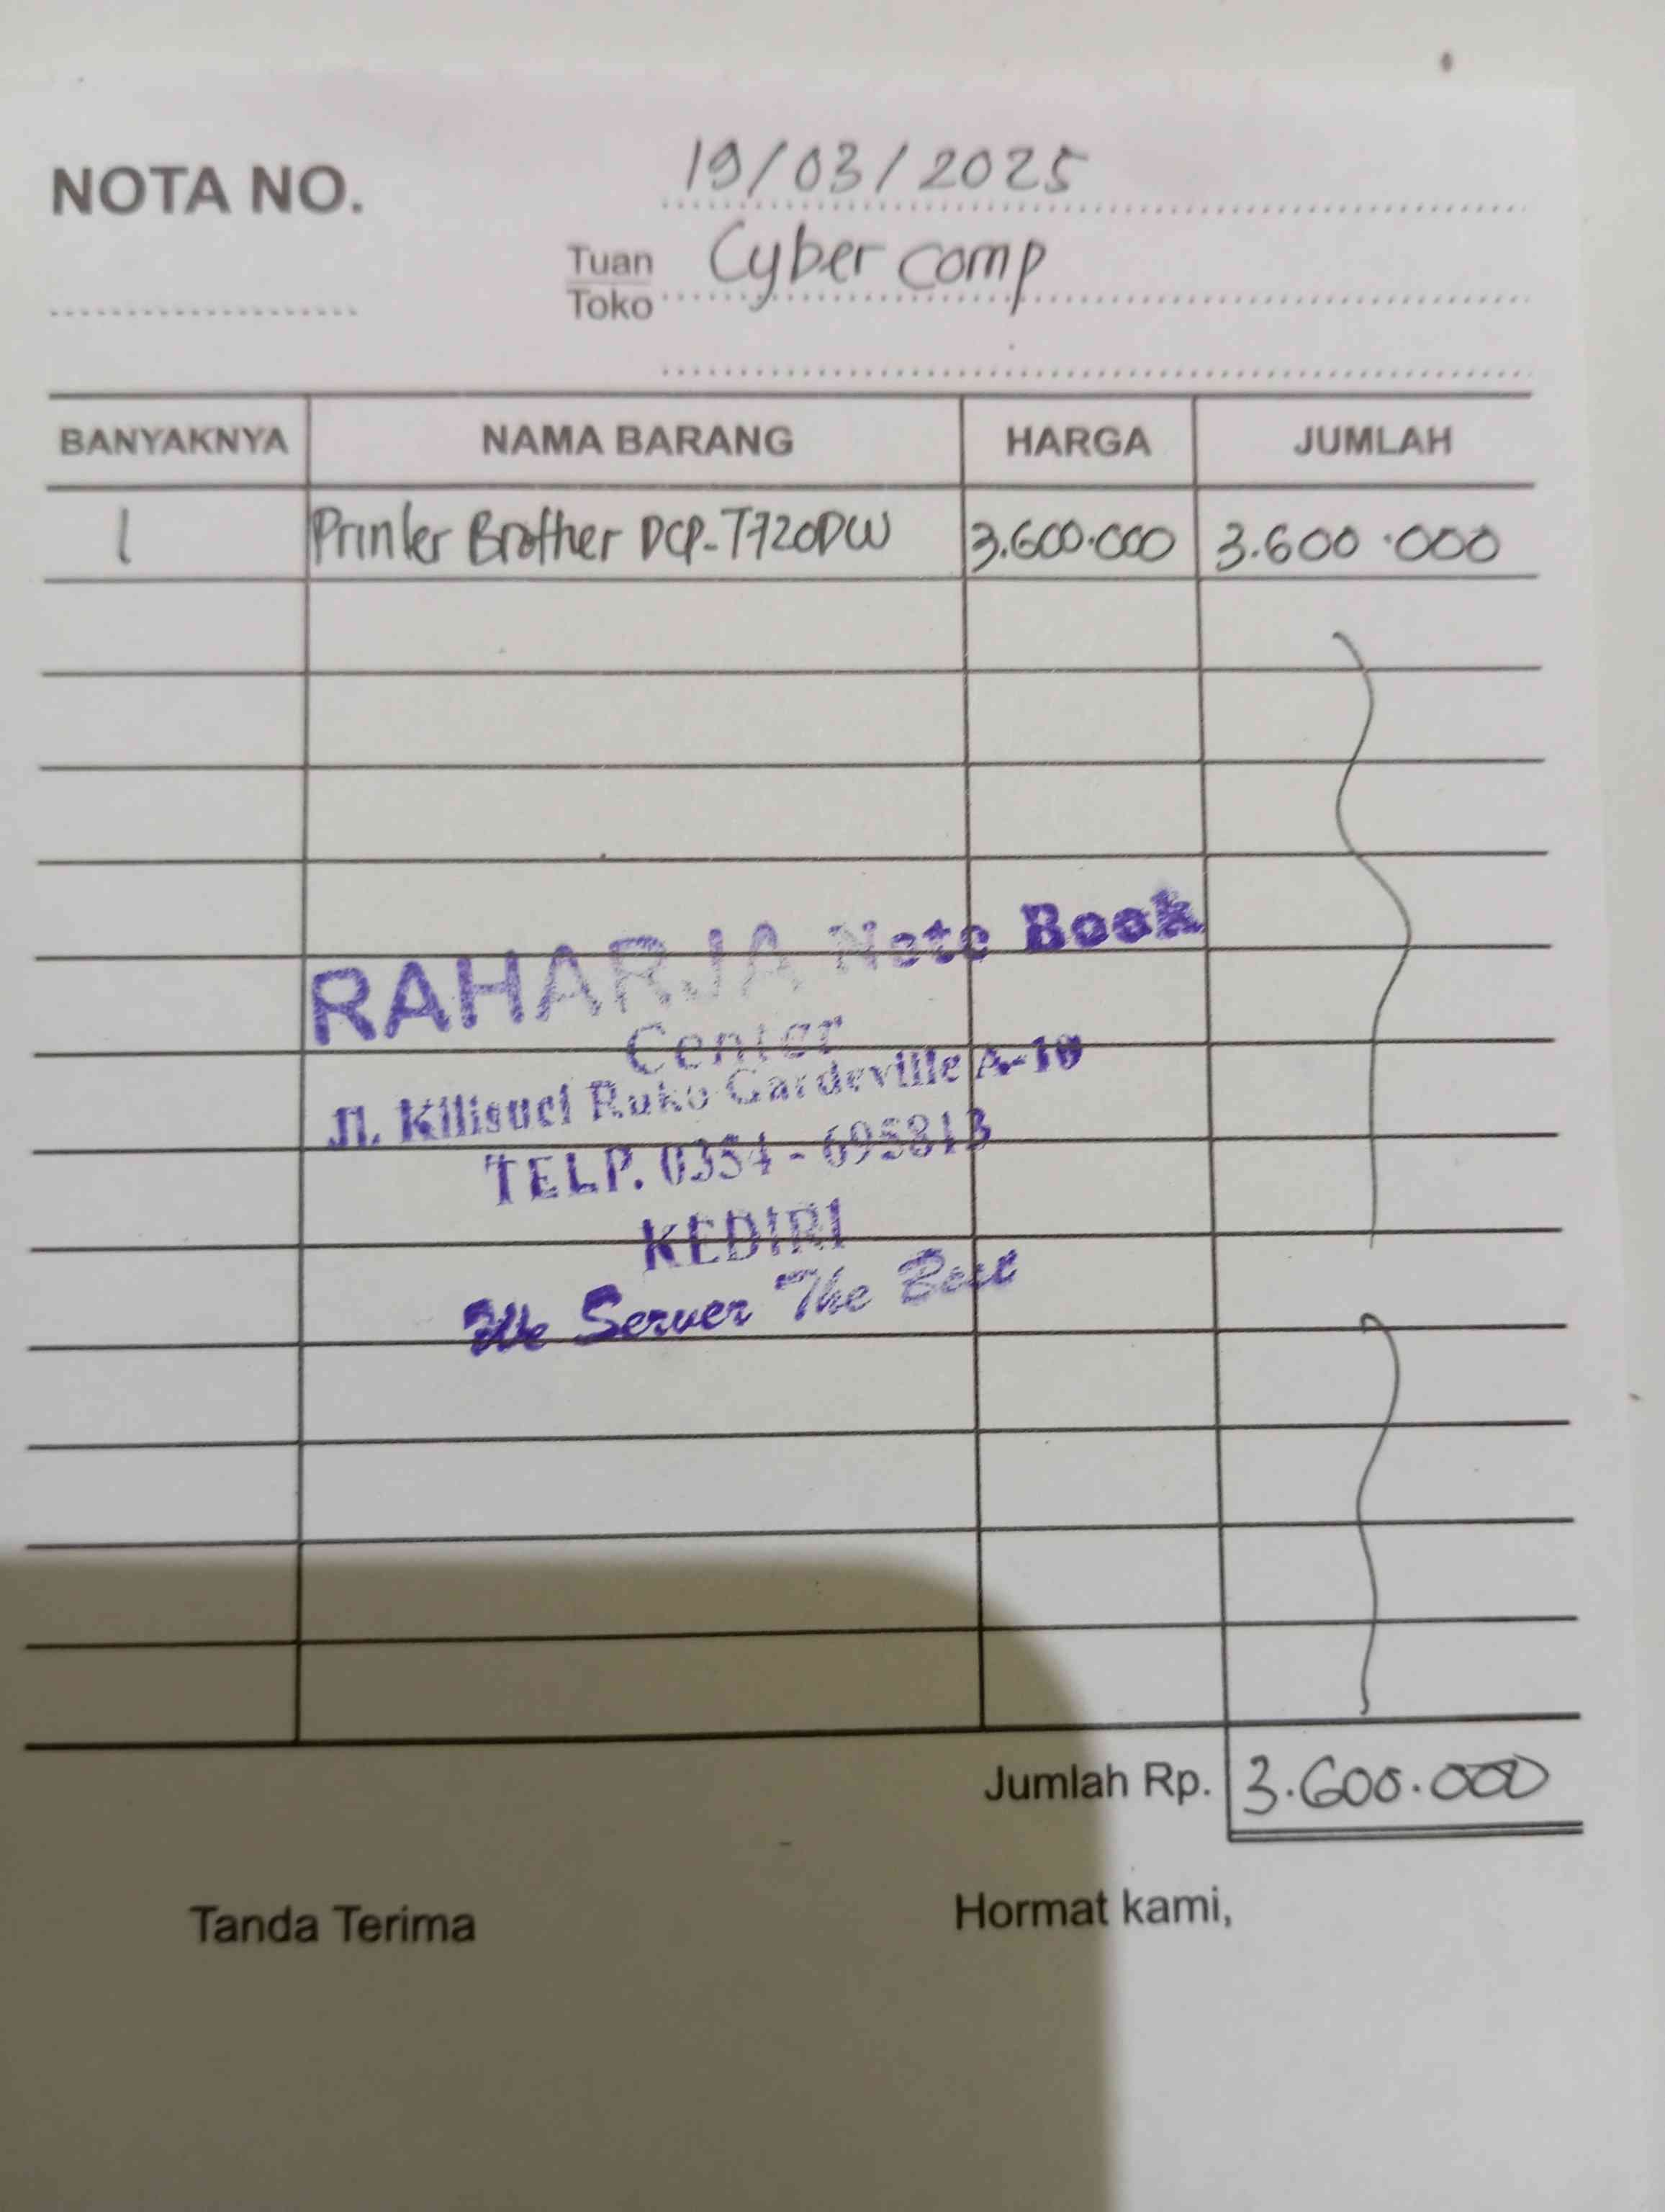 19/03/2025
NOTA NO.
Tuan Cyber comp
Toko
BANYAKNYA NAMA BARANG HARGA JUMLAH
1 Printer Brother DCP-T720DW 3.600.000 3.600.000
RAHARJA Note Book
Center
Jl. Kilisuci Ruko Gardeville A-10
TELP. 0354 - 695813
KEDIRI
We Server The Best
Jumlah Rp. 3.600.000
Tanda Terima Hormat kami,